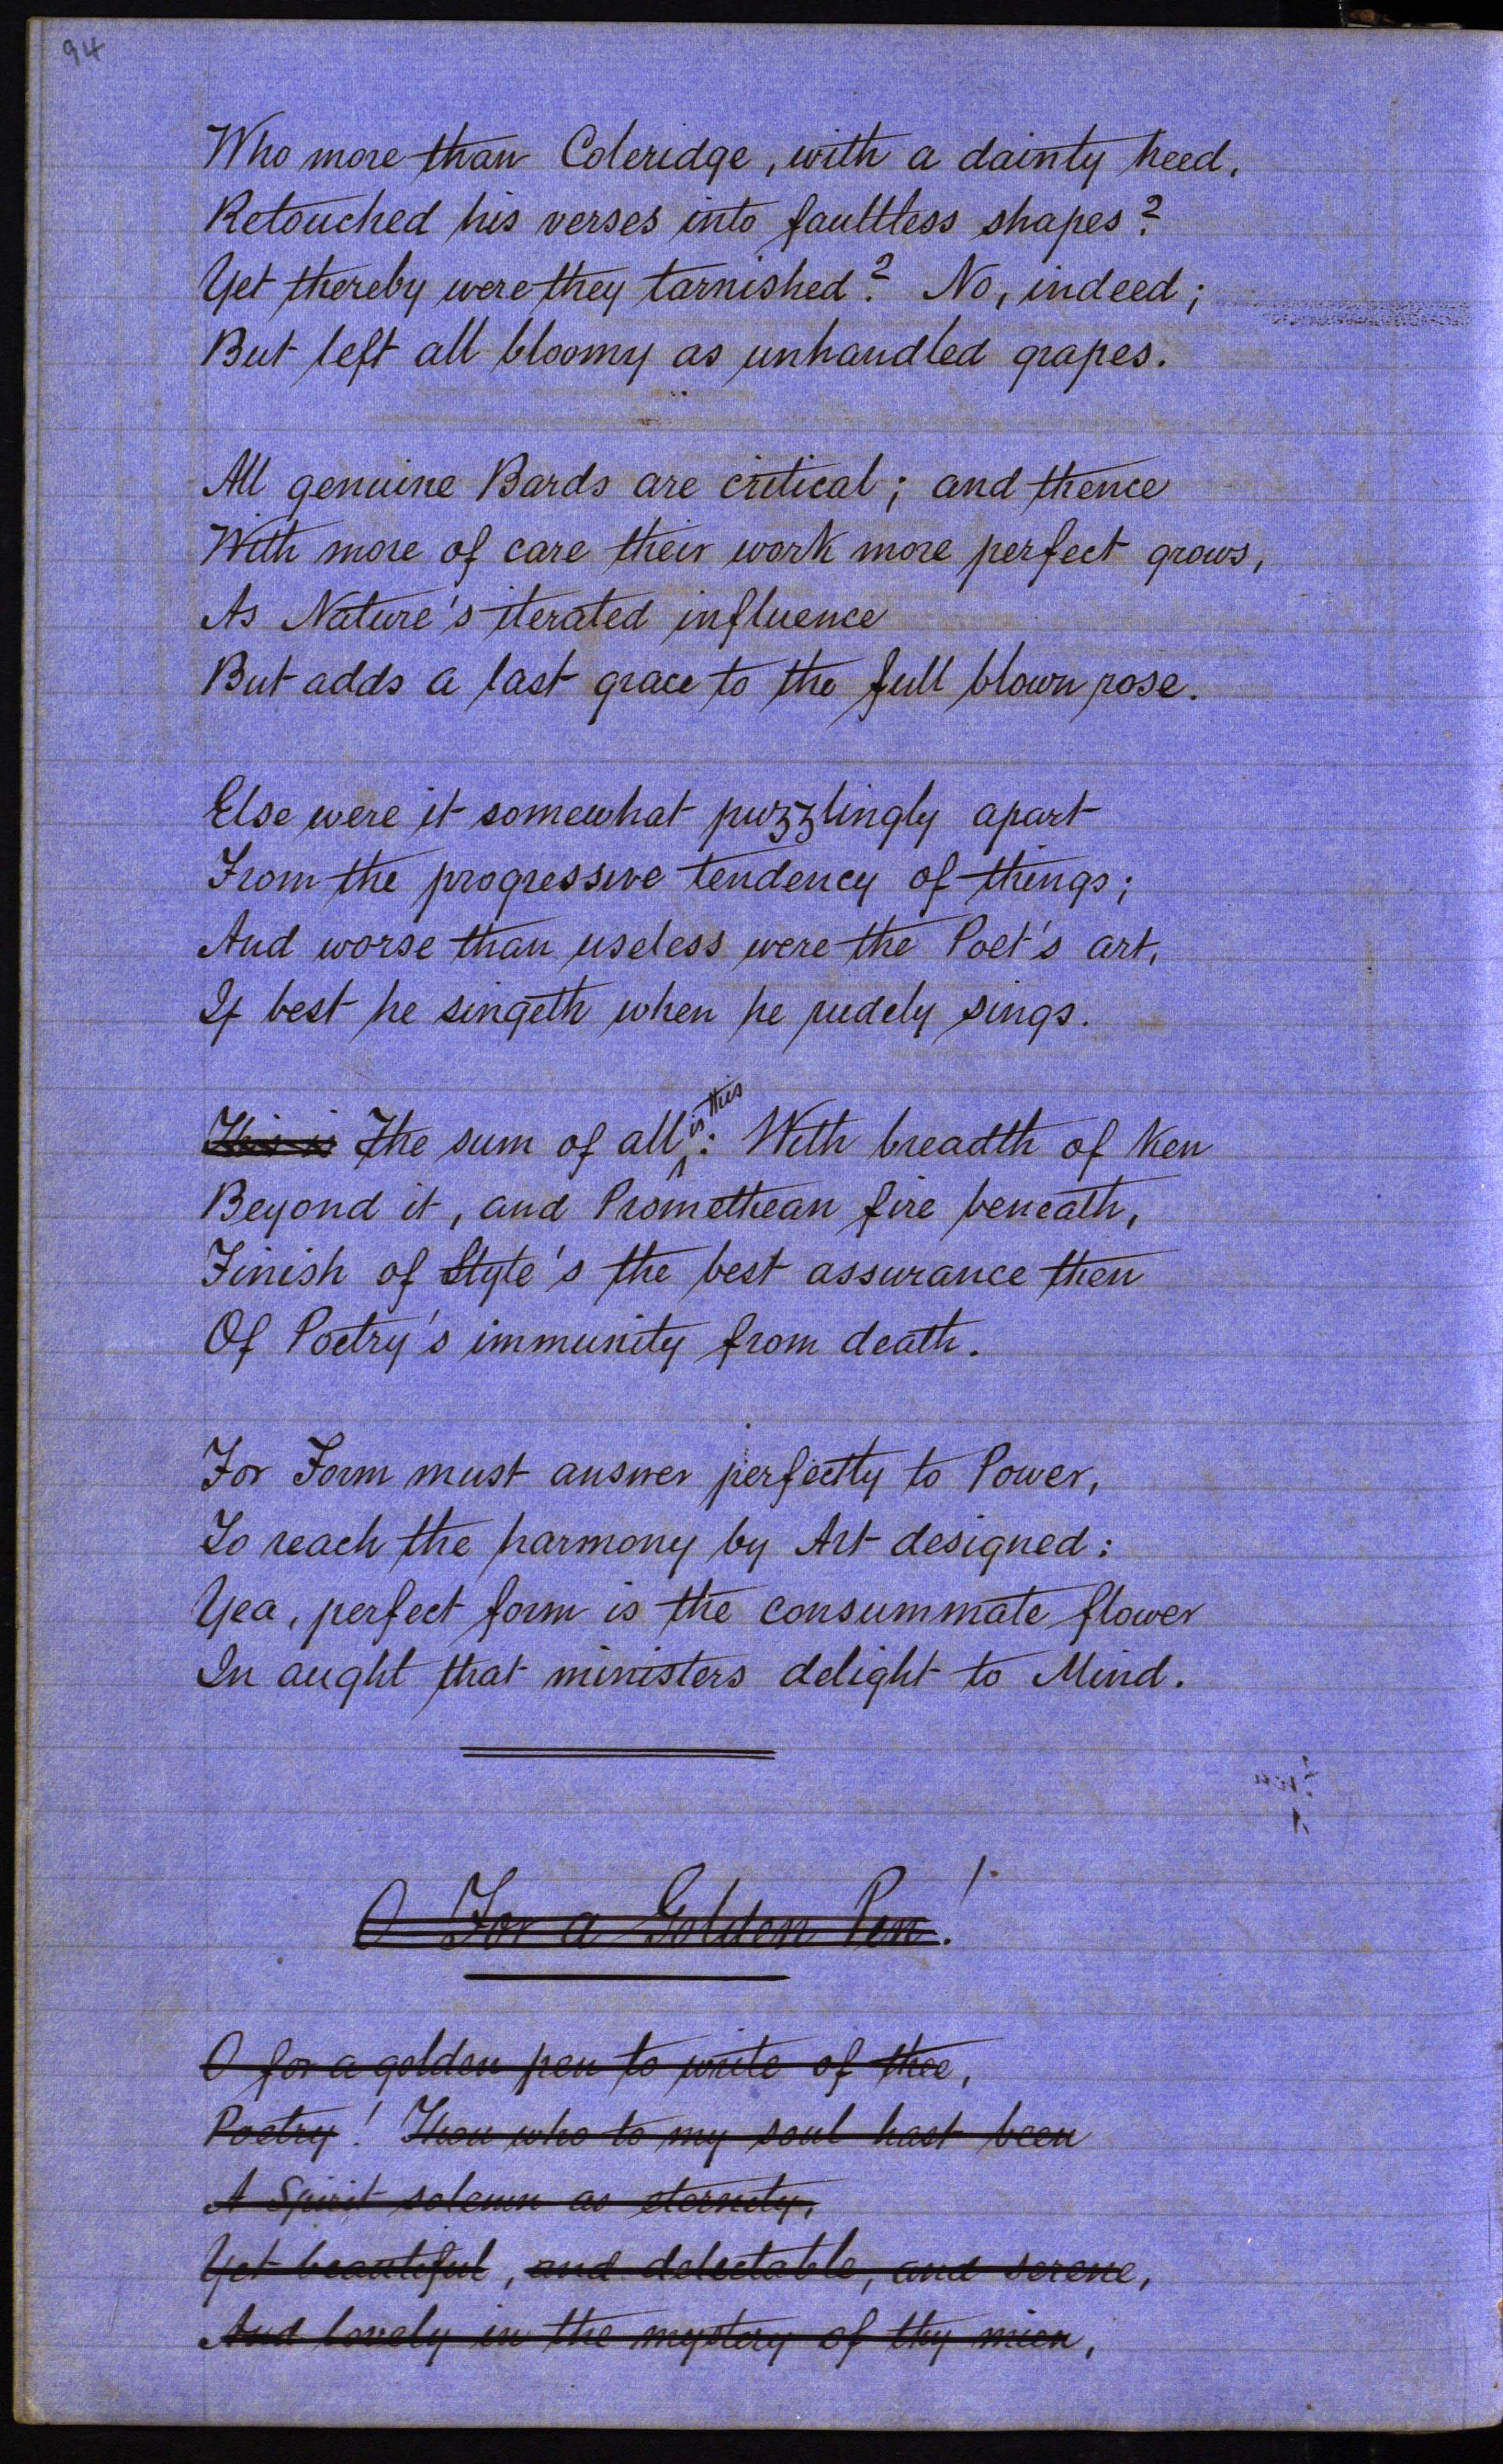 94
Who more than Coleridge, with a dainty heed,
Retouched his verses into faultless shapes?
Yet thereby were they tarnished? No, indeed;
But left all bloomy as unhandled grapes.
All genuine Bards are critical; and thence
With more of care their work more perfect grows,
As Nature's iterated influence
But adds a last grace to the full blown rose.
Else were it somewhat puzzlingly apart
From the progressive tendency of things;
And worse than useless were the Poet's art,
If best he singeth when he rudely sings.
This is The sum of all is this: With breadth of Ken
Beyond it, and Promethean fire beneath,
Finish of Style's the best assurance then
Of Poetry's immunity from death.
For Form must answer perfectly to Power,
To reach the harmony by Art designed:
Yea, perfect form is the consummate flower
In aught that ministers delight to Mind.
O For a Golden Pen!
O for a golden pen to write of thee,
Poetry! Thou who to my soul hast been
A Spirit solemn as eternity,
Yet beautiful, and delectable, and serene,
And lovely in the mystery of thy mien,